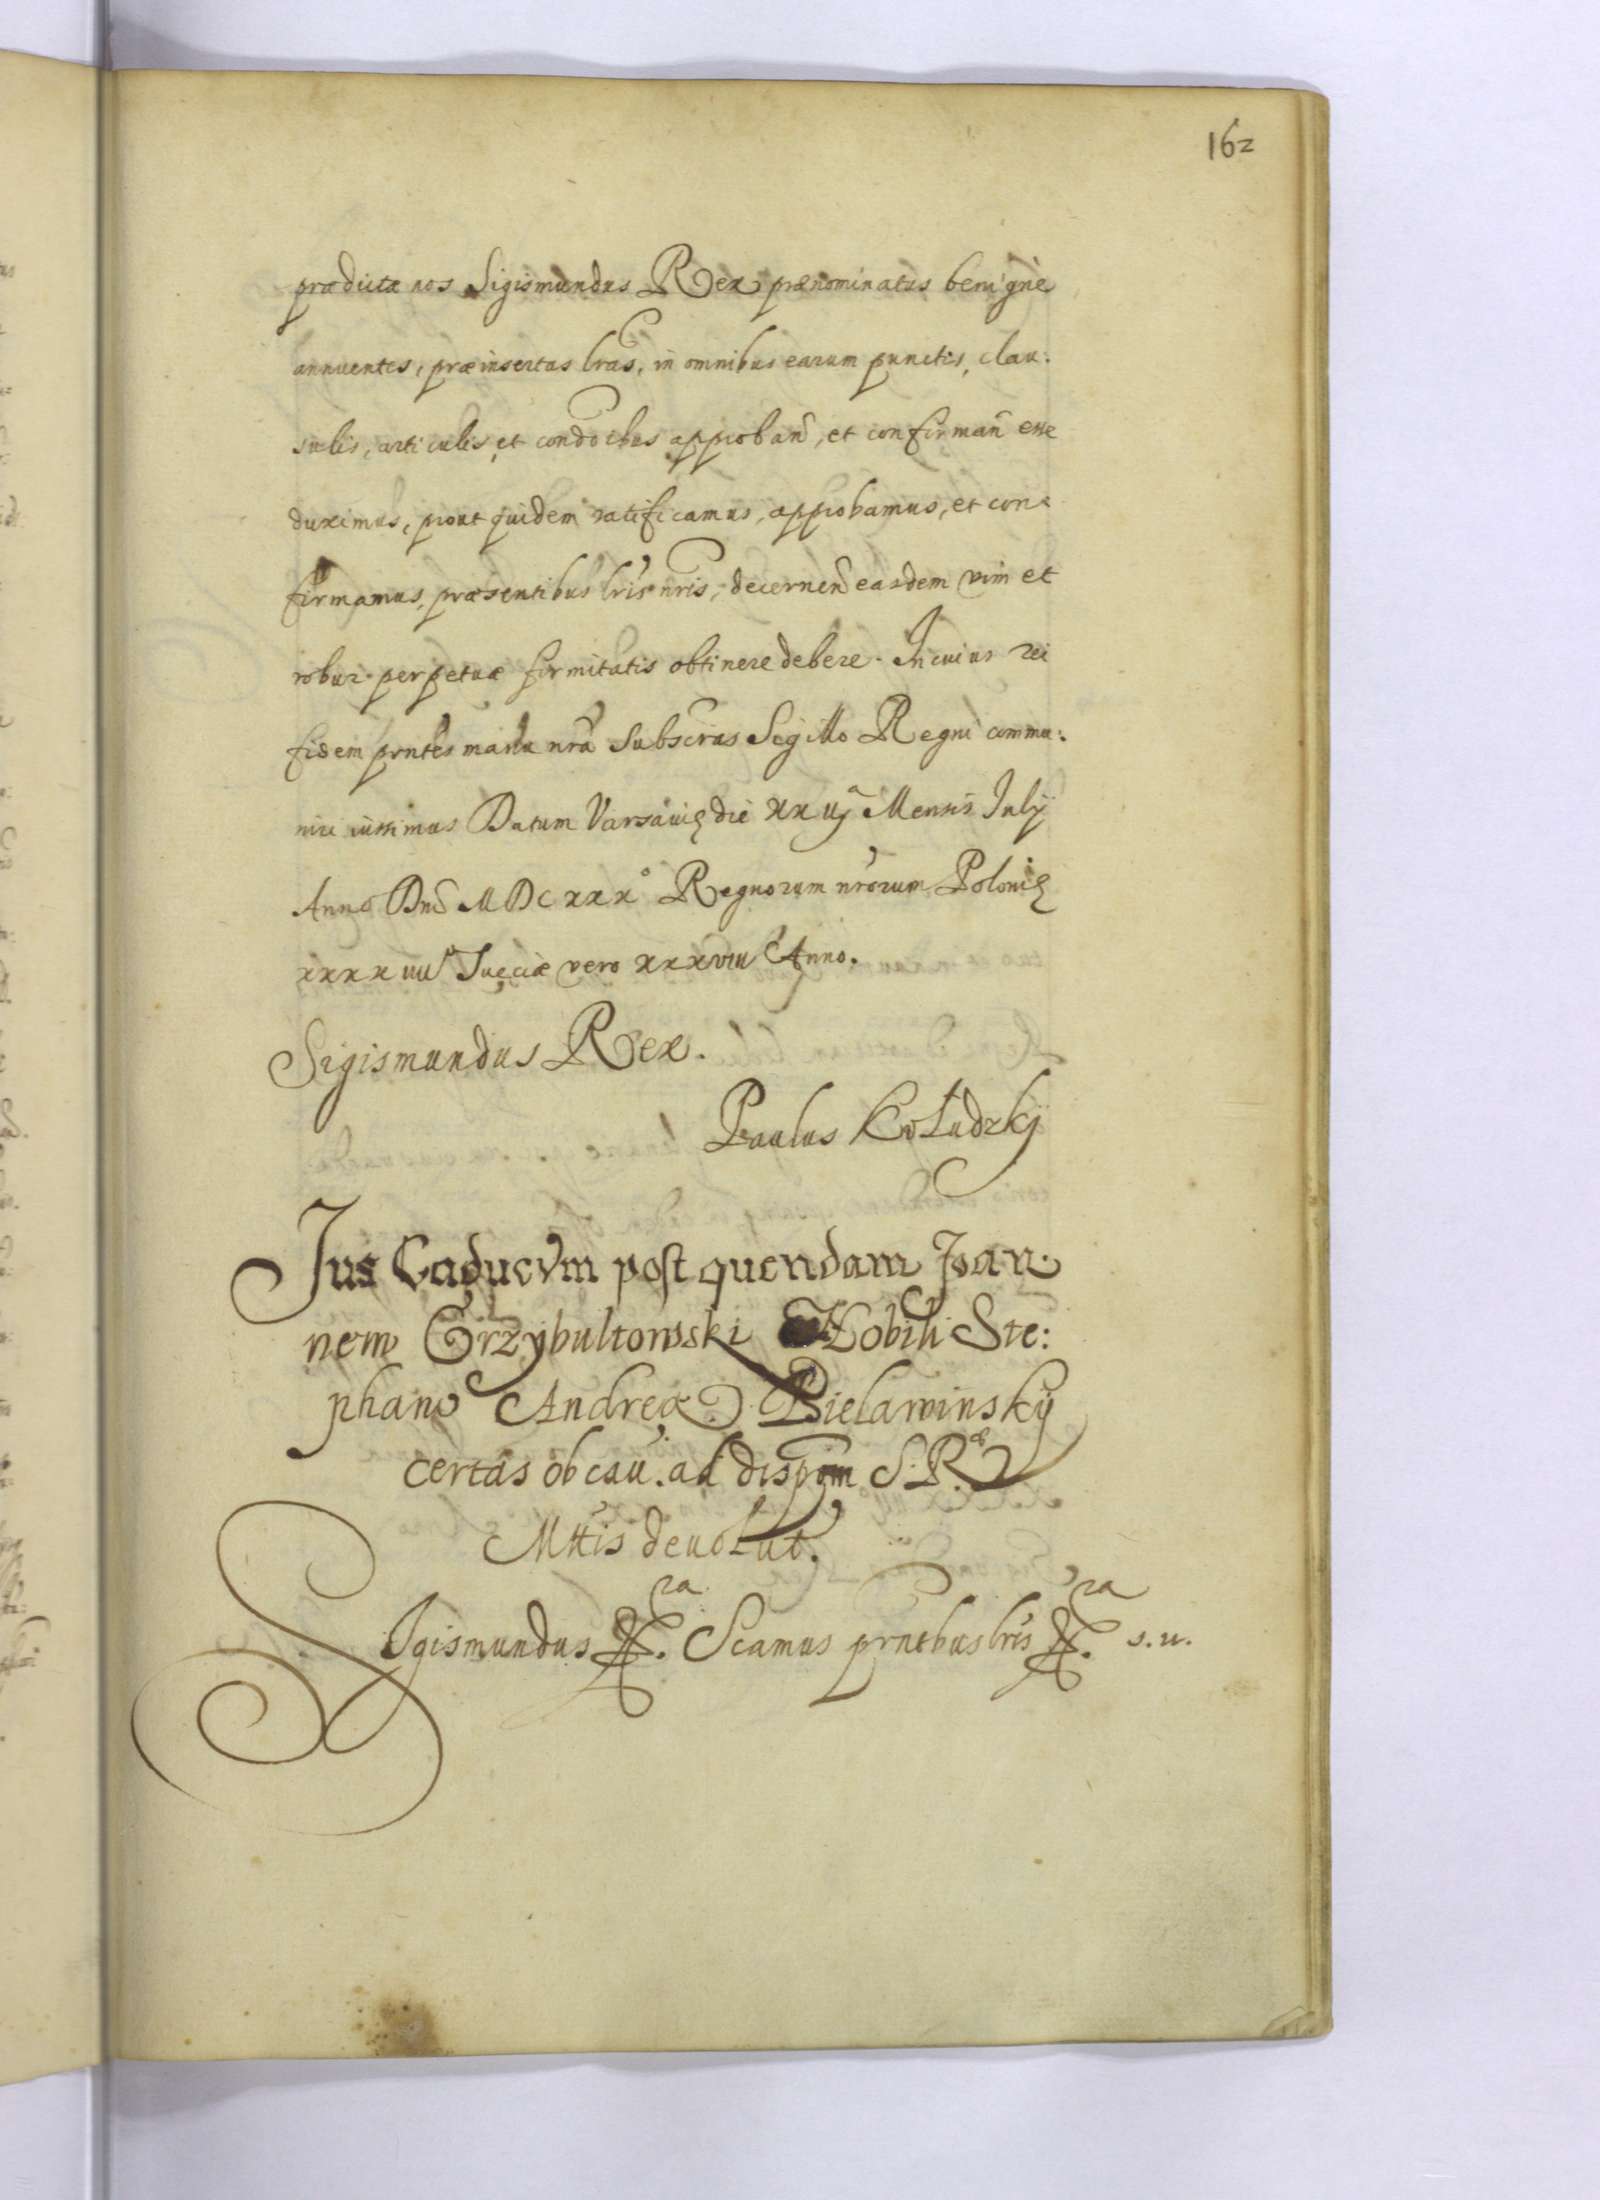 162
prædictæ nos Sigismundus Rex prænominatus benigne
annuentes, præinsertas lras, in omnibus earum punctis, clau:
sulis, articulis, et condoibus approban̄, et confirman̄ esse
duximus, prout quidem ratificamus, approbamus, et con:
firmamus, præsentibus lris nris, decernen̄ easdem vim et
robur perpetuæ firmitatis obtinere debere. In cuius rei
fidem prntes manu nrã subscrãs Sigillo Regni commu:
niri iussimus Datum Varsauię die xxuj Mensis Julij
Anno Dnĩ MDCxxx° Regnorum nrorum Polonię
xxxxiii Sueciæ vero xxxvii Anno.
Sigismundus Rex.
Paulus Kołudzkij
Jus Caducum post quendam Joan:
nem Grzybultowski Nobili Ste:
phano Andreæ Bielawinskij
certas ob cau. ad dispõm S. R.
Mttis deuolut.
Sigismundus Scamus prntbus lris s.u.